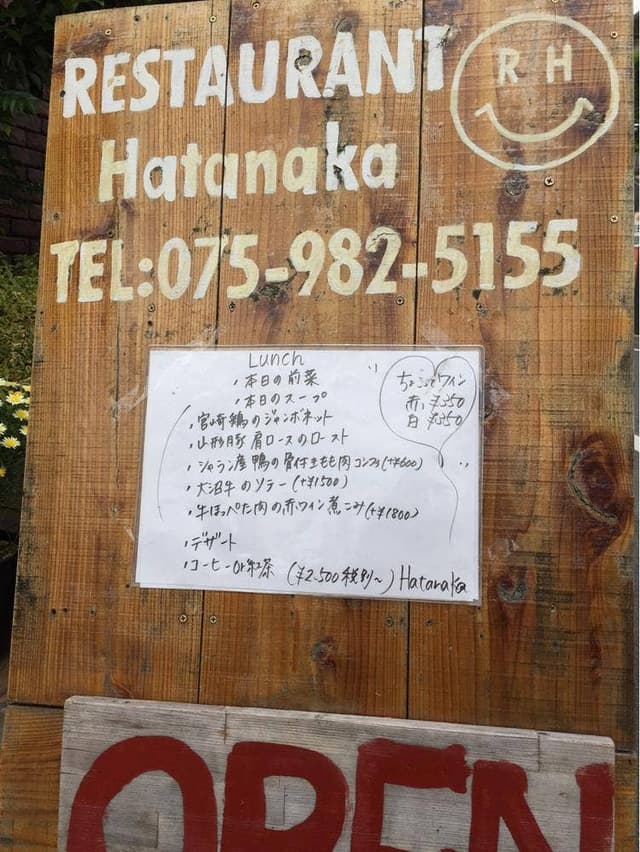 RESTAURANT
RH
Hatanaka
TEL:075-982-5155
Lunch
・本日の前菜
・本日のスープ
・宮崎鶏のジャンボネット
・山形豚肩ロースのロースト
・シャラン産鴨の骨付きもも肉コンフィ(+¥600)
・大沼牛のソテー(+¥1500)
・牛ほっぺた肉の赤ワイン煮こみ(+¥1800)
・デザート
・コーヒーor紅茶 (¥2,500税別〜) Hatanaka
ちょこっとワイン
赤 ¥350
白 ¥350
OPEN